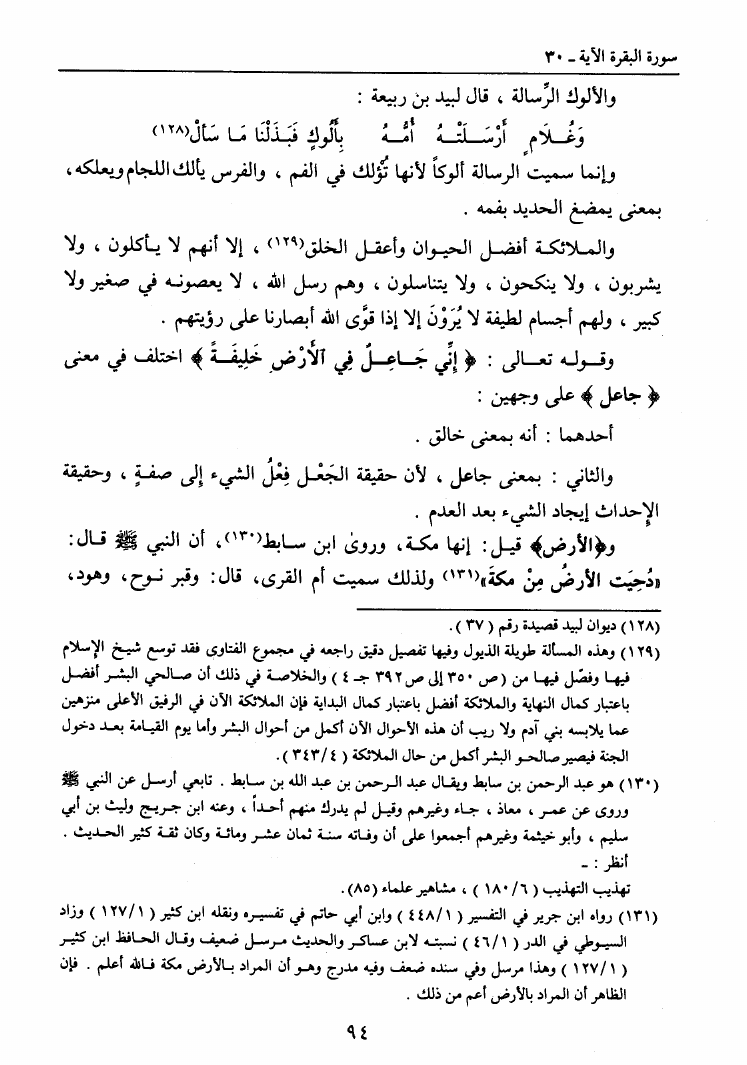 سورة البقرة الآية ـ ٣٠
والألوك الرِّسالة ، قال لبيد بن ربيعة :
وَغُـلَامٍ أَرْسَـلَتْـهُ أُمُّـهُ بِأَلُوكٍ فَبَذَلْنَا مَـا سَأَلْ(١٢٨)
وإنما سميت الرسالة ألوكاً لأنها تُؤلك في الفم ، والفرس يألك اللجام ويعلكه ،
بمعنى يمضغ الحديد بفمه .
والمـلائكـة أفضـل الحيـوان وأعقـل الخلق(١٢٩) ، إلا أنهم لا يـأكلون ، ولا
يشربون ، ولا ينكحون ، ولا يتناسلون ، وهم رسل الله ، لا يعصونـه في صغير ولا
كبير ، ولهم أجسام لطيفة لا يُرَوْنَ إلا إذا قوَّى الله أبصارنا على رؤيتهم .
وقـولـه تعـالى : ﴿ إِنِّي جَـاعِـلٌ فِي ٱلْأَرْضِ خَلِيفَـةً ﴾ اختلف في معنى
﴿ جاعل ﴾ على وجهين :
أحدهما : أنه بمعنى خالق .
والثاني : بمعنى جاعل ، لأن حقيقة الجَعْـل فِعْلُ الشيء إلى صفـةٍ ، وحقيقة
الإحداث إيجاد الشيء بعد العدم .
و﴿الأرض﴾ قيـل : إنها مكـة، وروىٰ ابن سـابط(١٣٠)، أن النبي ﷺ قـال:
«دُحِيَت الأرضُ مِنْ مكةَ»(١٣١) ولذلك سميت أم القرى، قال: وقبر نـوح، وهود،
(١٢٨) ديوان لبيد قصيدة رقم ( ٣٧ ) .
(١٢٩) وهذه المسألة طويلة الذيول وفيها تفصيل دقيق راجعه في مجموع الفتاوى فقد توسع شيخ الإسلام
فيهـا وفصّل فيهـا من ( ص ٣٥٠ إلى ص ٣٩٢ جـ ٤ ) والخلاصـة في ذلك أن صـالحي البشـر أفضـل
باعتبار كمال النهاية والملائكة أفضل باعتبار كمال البداية فإن الملائكة الآن في الرفيق الأعلى منزهين
عما يلابسه بني آدم ولا ريب أن هذه الأحوال الآن أكمل من أحوال البشر وأما يوم القيامة بعـد دخول
الجنة فيصير صالحـو البشر أكمل من حال الملائكة ( ٣٤٣/٤ ) .
(١٣٠) هو عبد الرحمن بن سابط ويقـال عبد الـرحمن بن عبد الله بن سـابط . تابعي أرسـل عن النبي ﷺ
وروى عن عمـر ، معاذ ، جـاء وغيرهم وقيـل لم يدرك منهم أحـداً ، وعنه ابن جـريج وليث بن أبي
سليم ، وأبو خيثمة وغيرهم أجمعوا على أن وفـاته سنـة ثمان عشـر ومائـة وكان ثقـة كثير الحـديث .
أنظر : ـ
تهذيب التهذيب ( ١٨٠/٦ ) ، مشاهير علماء (٨٥).
(١٣١) رواه ابن جرير في التفسير ( ٤٤٨/١ ) وابن أبي حاتم في تفسيـره ونقله ابن كثير ( ١٢٧/١ ) وزاد
السيـوطي في الدر ( ٤٦/١ ) نسبتـه لابن عساكـر والحديث مـرسل ضعيف وقـال الحـافظ ابن كثيـر
( ١٢٧/١ ) وهذا مرسل وفي سنده ضعف وفيه مدرج وهـو أن المراد بـالأرض مكة فـالله أعلم . فإن
الظاهر أن المراد بالأرض أعم من ذلك .
٩٤